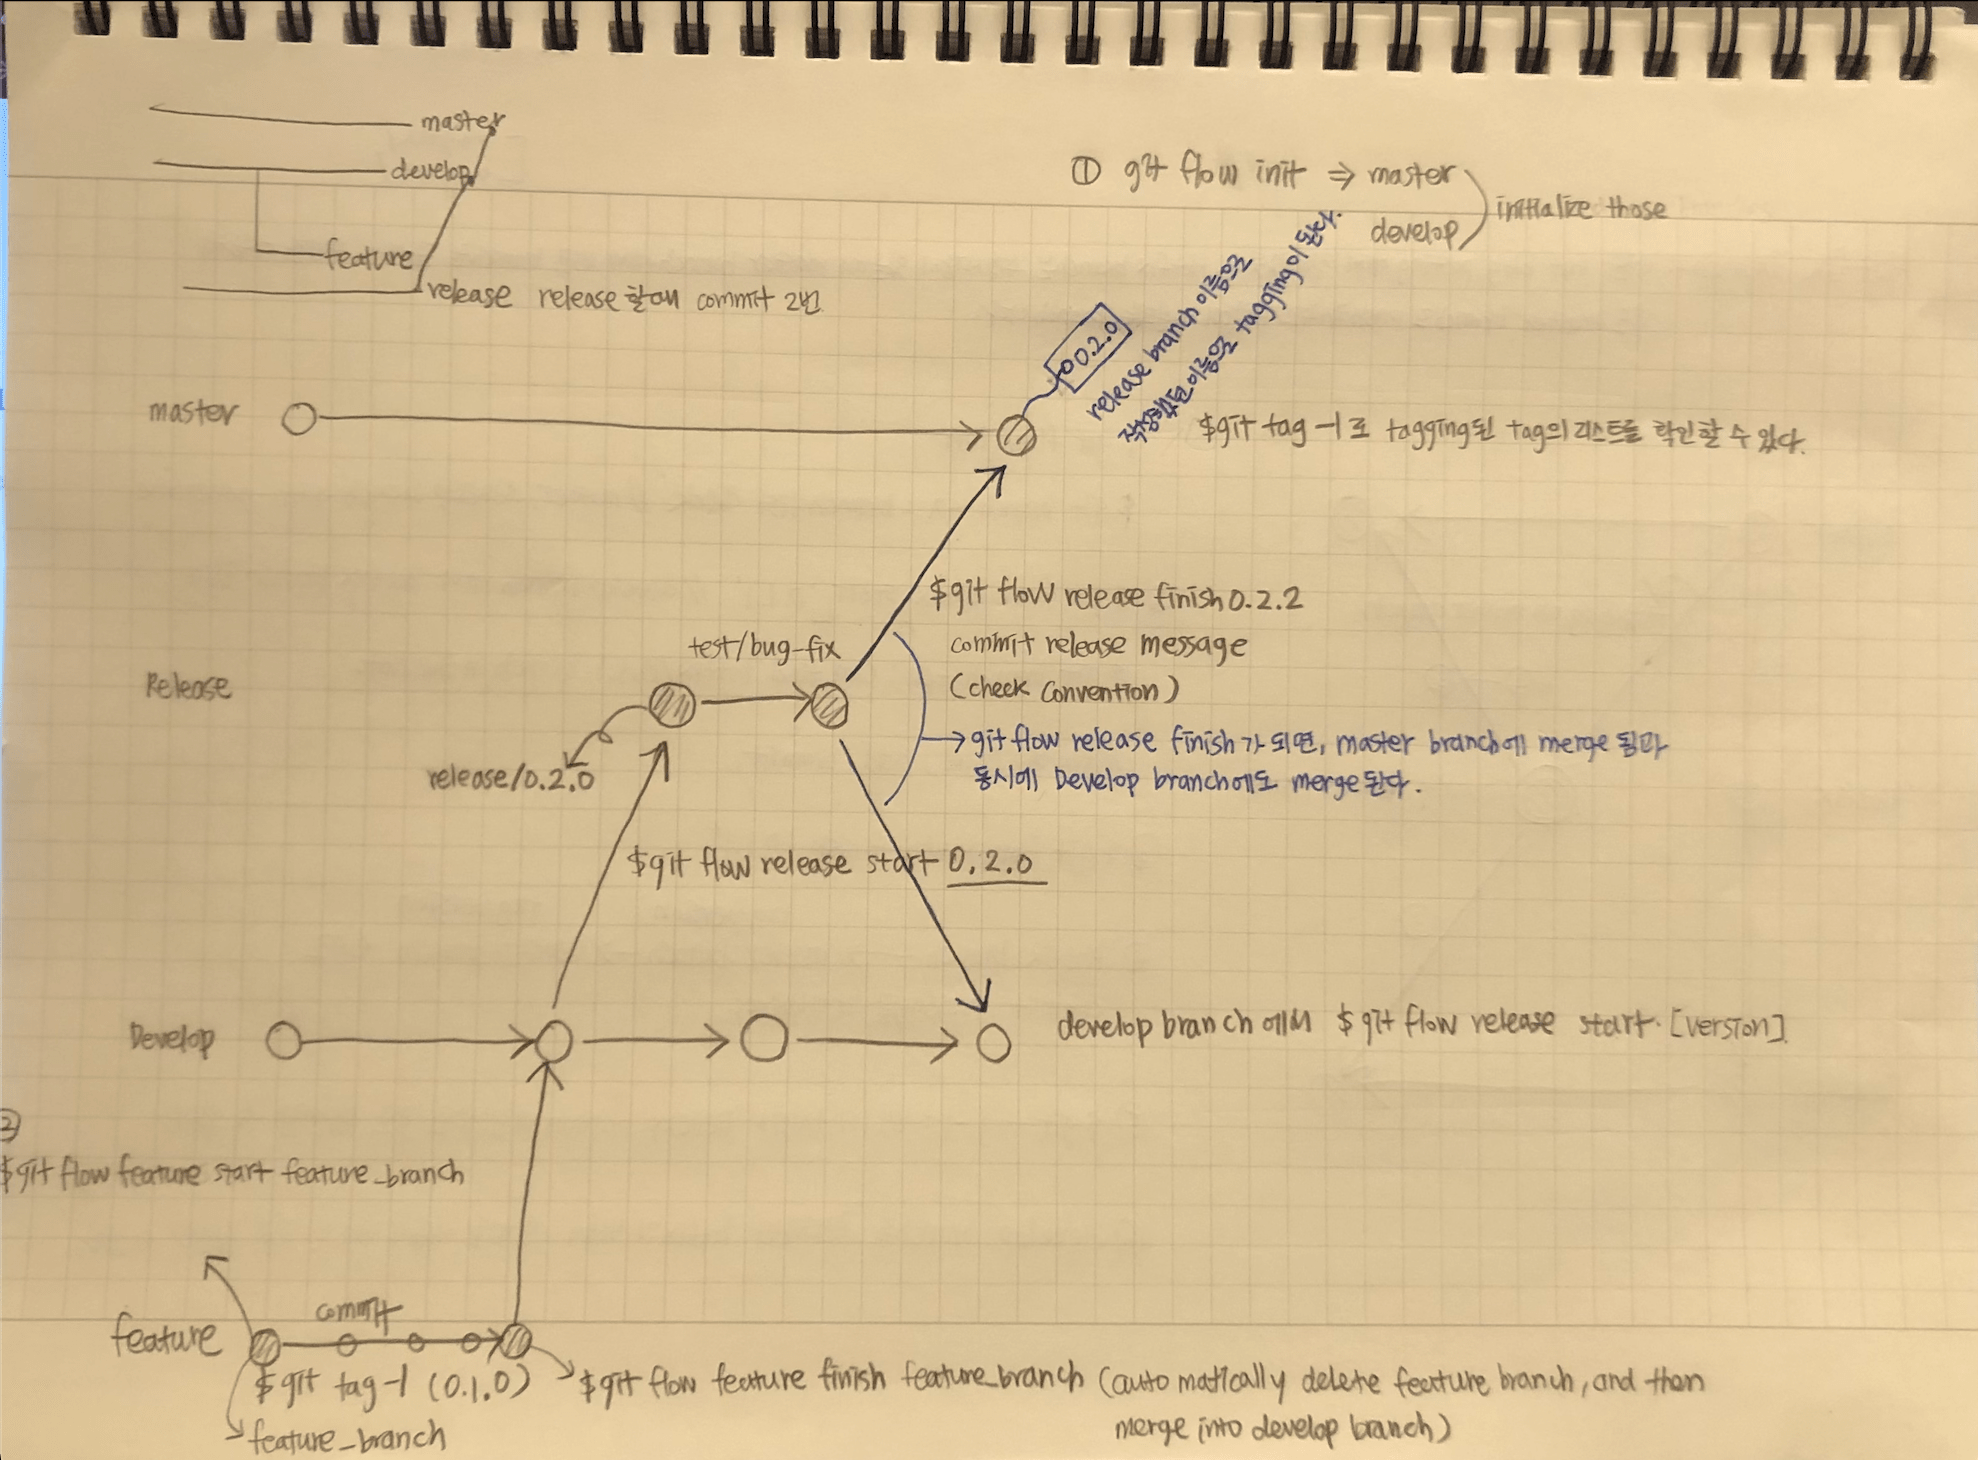 master
develop
feature
release release 할때 commit 2번
① git flow init ⇒ master
develop
initialize those
0.2.0
release branch 이름으로
이름으로 tagging이 된다.
master
$git tag -l로 tagging된 tag의 리스트를 확인할 수 있다.
$git flow release finish 0.2.2
commit release message
(check convention)
→ git flow release finish가 되면, master branch에 merge 됨과
동시에 Develop branch에도 merge된다.
test/bug-fix
Release
release/0.2.0
$git flow release start 0.2.0
Develop
develop branch에서 $git flow release start [version]
②
$git flow feature start feature_branch
commit
feature
$git tag -l (0.1.0)
feature_branch
$git flow feature finish feature_branch (automatically delete feature branch, and then
merge into develop branch)